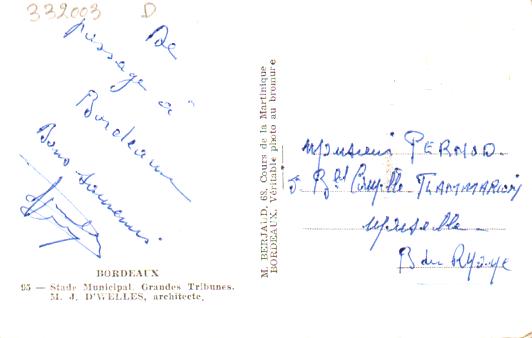 332003 D
De
passage à
Bordeaux
Bons souvenirs
BORDEAUX
95 — Stade Municipal. Grandes Tribunes.
M. J. D'WELLES, architecte.
M. BERJAUD, 68, Cours de la Martinique
BORDEAUX, Véritable photo au bromure
Monsieur PERNOD
5 Bd Camille FLAMMARION
Marseille
B du Rhône